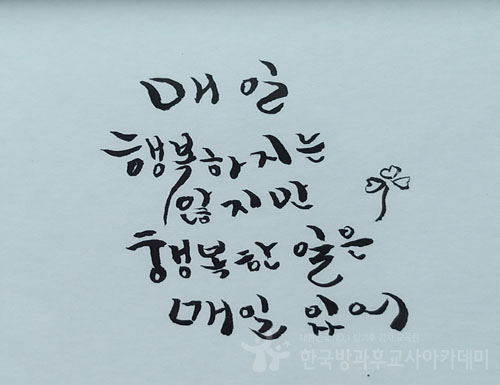 매일
행복하지는
않지만
행복한 일은
매일 있어
한국방과후교사아카데미